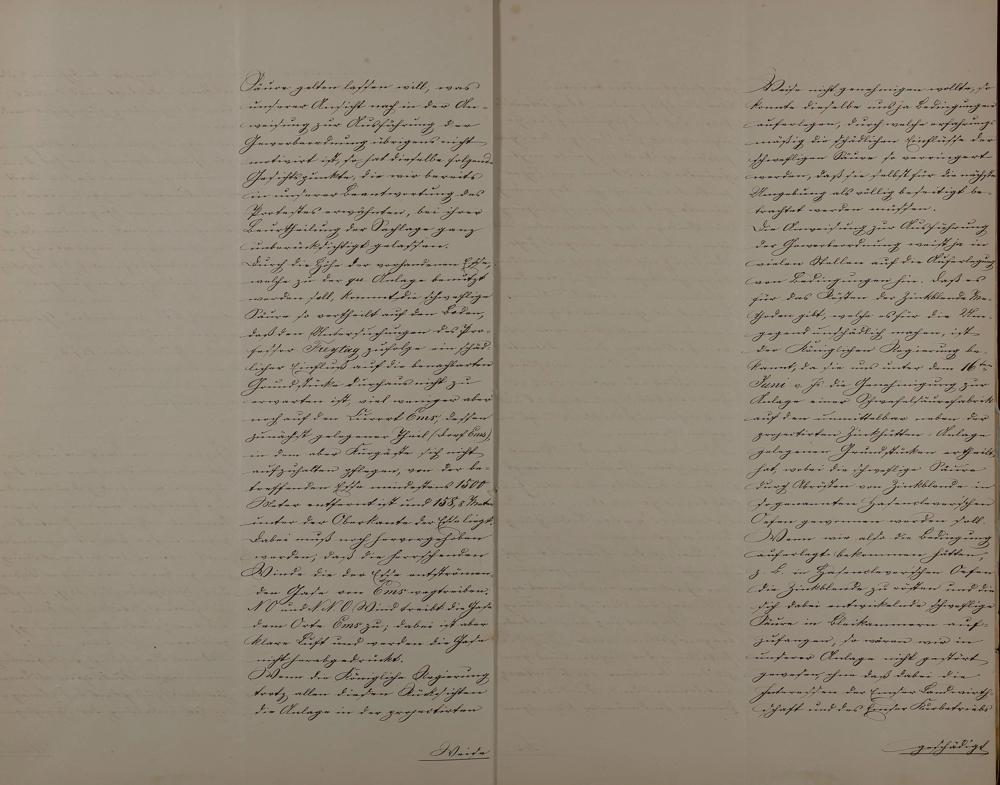 Säure gelten lassen will, was
unserer Ansicht nach in der An-
weisung zur Ausführung der
Gewerbeordnung übrigens nicht
motivirt ist, so hat dieselbe folgende
Gesichtspunkte, die wir bereits
in unserer Beantwortung des
Protestes erwähnten, bei ihrer
Beurtheilung der Sachlage ganz
unberücksichtigt gelassen.
Durch die Höhe der vorhandenen Esse,
welche zu der qu. Anlage benutzt
werden soll, kommt die schweflige
Säure so vertheilt auf den Boden,
daß den Untersuchungen des Pro-
fessor Freytag zufolge ein schäd-
licher Einfluß auf die benachbarten
Grundstücke durchaus nicht zu
erwarten ist, viel weniger aber
noch auf den Curort Ems, dessen
zunächst gelegener Theil (Dorf Ems),
in dem aber Kurgäste sich nicht
aufzuhalten pflegen, von der be-
treffenden Esse mindestens 1500
Meter entfernt ist und 158,8 Meter
unter der Oberkante der Esse liegt.
Dabei muß noch hervorgehoben
werden, daß die herrschenden
Winde die der Esse entströmen-
den Gase von Ems wegtreiben.
NO und NNO Wind treibt die Gase
dem Orte Ems zu; dabei ist aber
klare Luft und werden die Gase
nicht herabgedrückt.
Wenn die Königliche Regierung
trotz allen diesen Rücksichten
die Anlage in der projectirten
Weise
Weise nicht genehmigen wollte, so
konnte dieselbe uns ja Bedingungen
auferlegen, durch welche erfahrungs-
mäßig die schädlichen Einflüsse der
schwefligen Säure so verringert
werden, daß sie selbst für die nächste
Umgebung als völlig beseitigt be-
trachtet werden müssen.
Die Anweisung zur Ausführung
der Gewerbeordnung weist ja in
vielen Stellen auf die Auferlegung
von Bedingungen hin. Daß es
für das Rösten der Zinkblende Me-
thoden gibt, welche es für die Um-
gegend unschädlich machen, ist
der Königlichen Regierung be-
kannt, da sie uns unter dem 16ten
Juni v. Js die Genehmigung zur
Anlage einer Schwefelsäurefabrik
auf den unmittelbar neben der
projectirten Zinkhütten-Anlage
gelegenen Grundstücken ertheilt
hat, wobei die schweflige Säure
durch Abrösten von Zinkblende in
sogenannten Hasencleverschen
Oefen gewonnen werden soll.
Wenn wir also die Bedingung
auferlegt bekommen hätten,
z. B. in Hasencleverschen Oefen
die Zinkblende zu rösten und die
sich dabei entwickelnde schweflige
Säure in Bleikammern auf-
zufangen, so wären wir in
unserer Anlage nicht gestört
gewesen, ohne daß dabei die
Interessen der Emser Landwirth-
schaft und des Emser Kurbetriebs
geschädigt